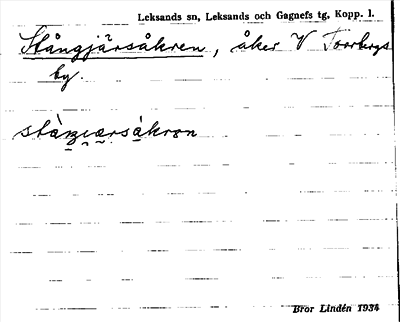 Leksands sn, Leksands och Gagnefs tg, Kopp. l.
Stångjärsåkren, åker V Torrbergs
by.
Bror Lindén 1934